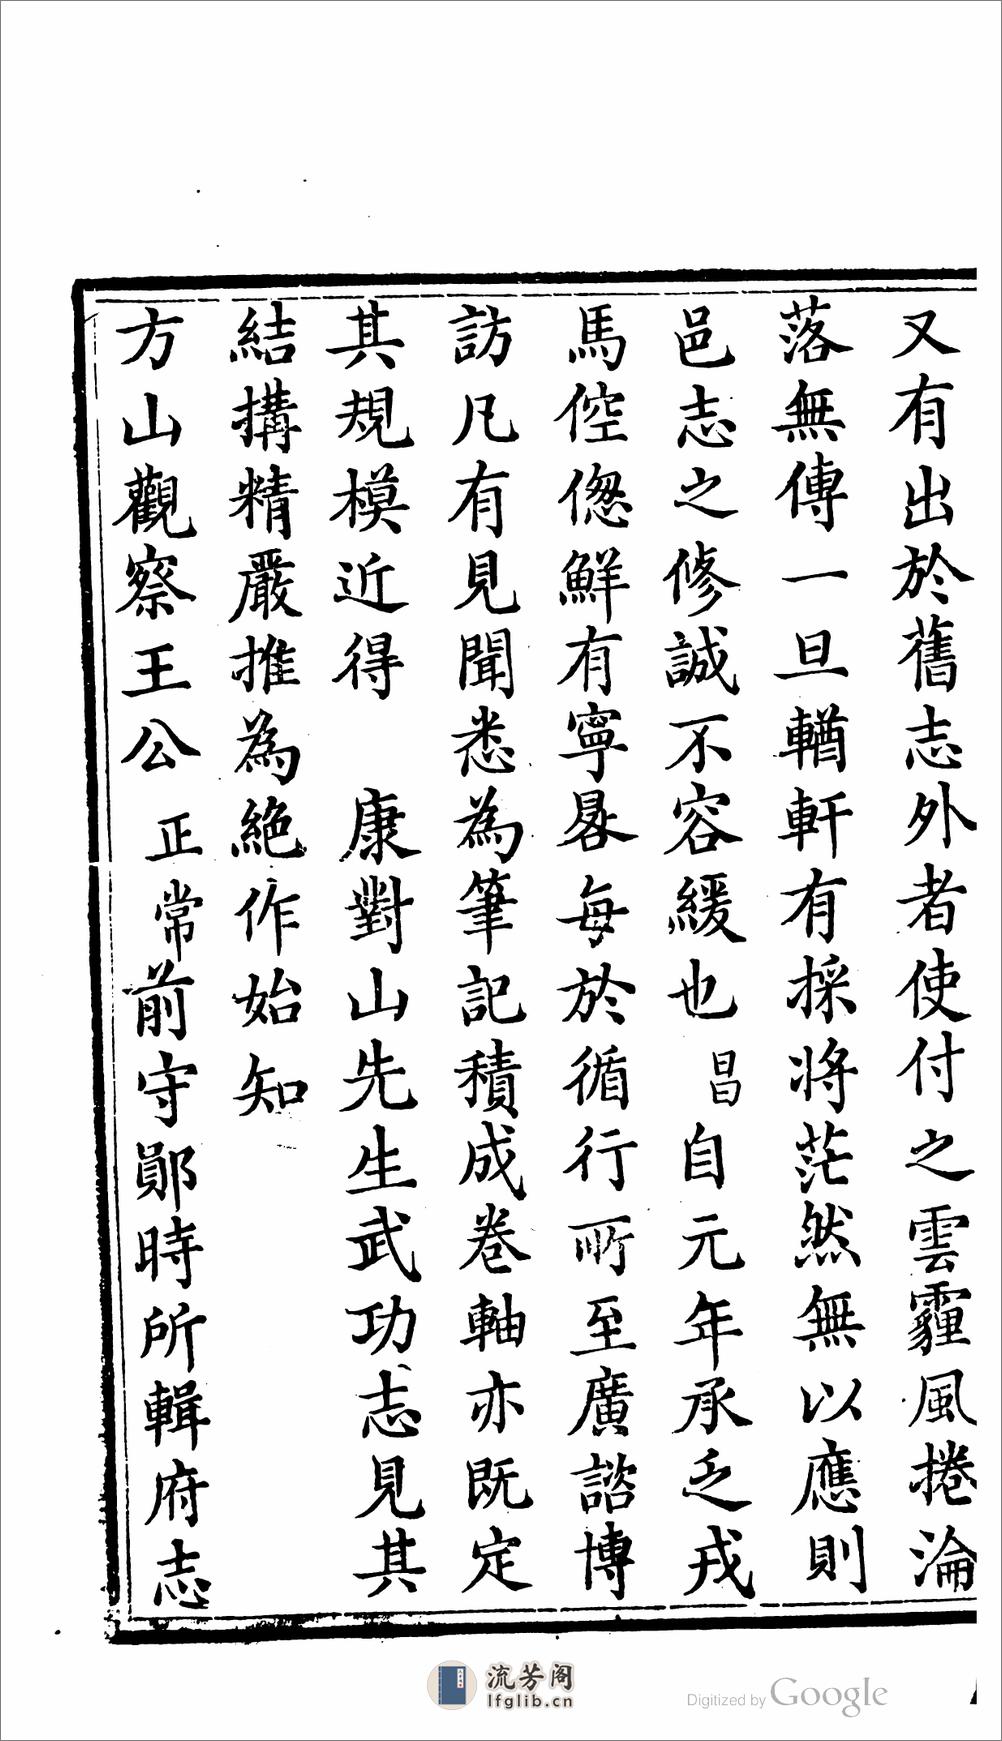 又有出於舊志外者使付之雲霾風捲淪
落無傳一旦輶軒有採將茫然無以應則
邑志之修誠不容緩也昌自元年承乏戎
馬倥偬鮮有寧晷每於循行所至廣諮博
訪凡有見聞悉為筆記積成卷軸亦既定
其規模近得　康對山先生武功志見其
結搆精嚴推為絶作始知
方山觀察王公正常前守鄖時所輯府志
流芳阁
lfglib.cn
Digitized by Google